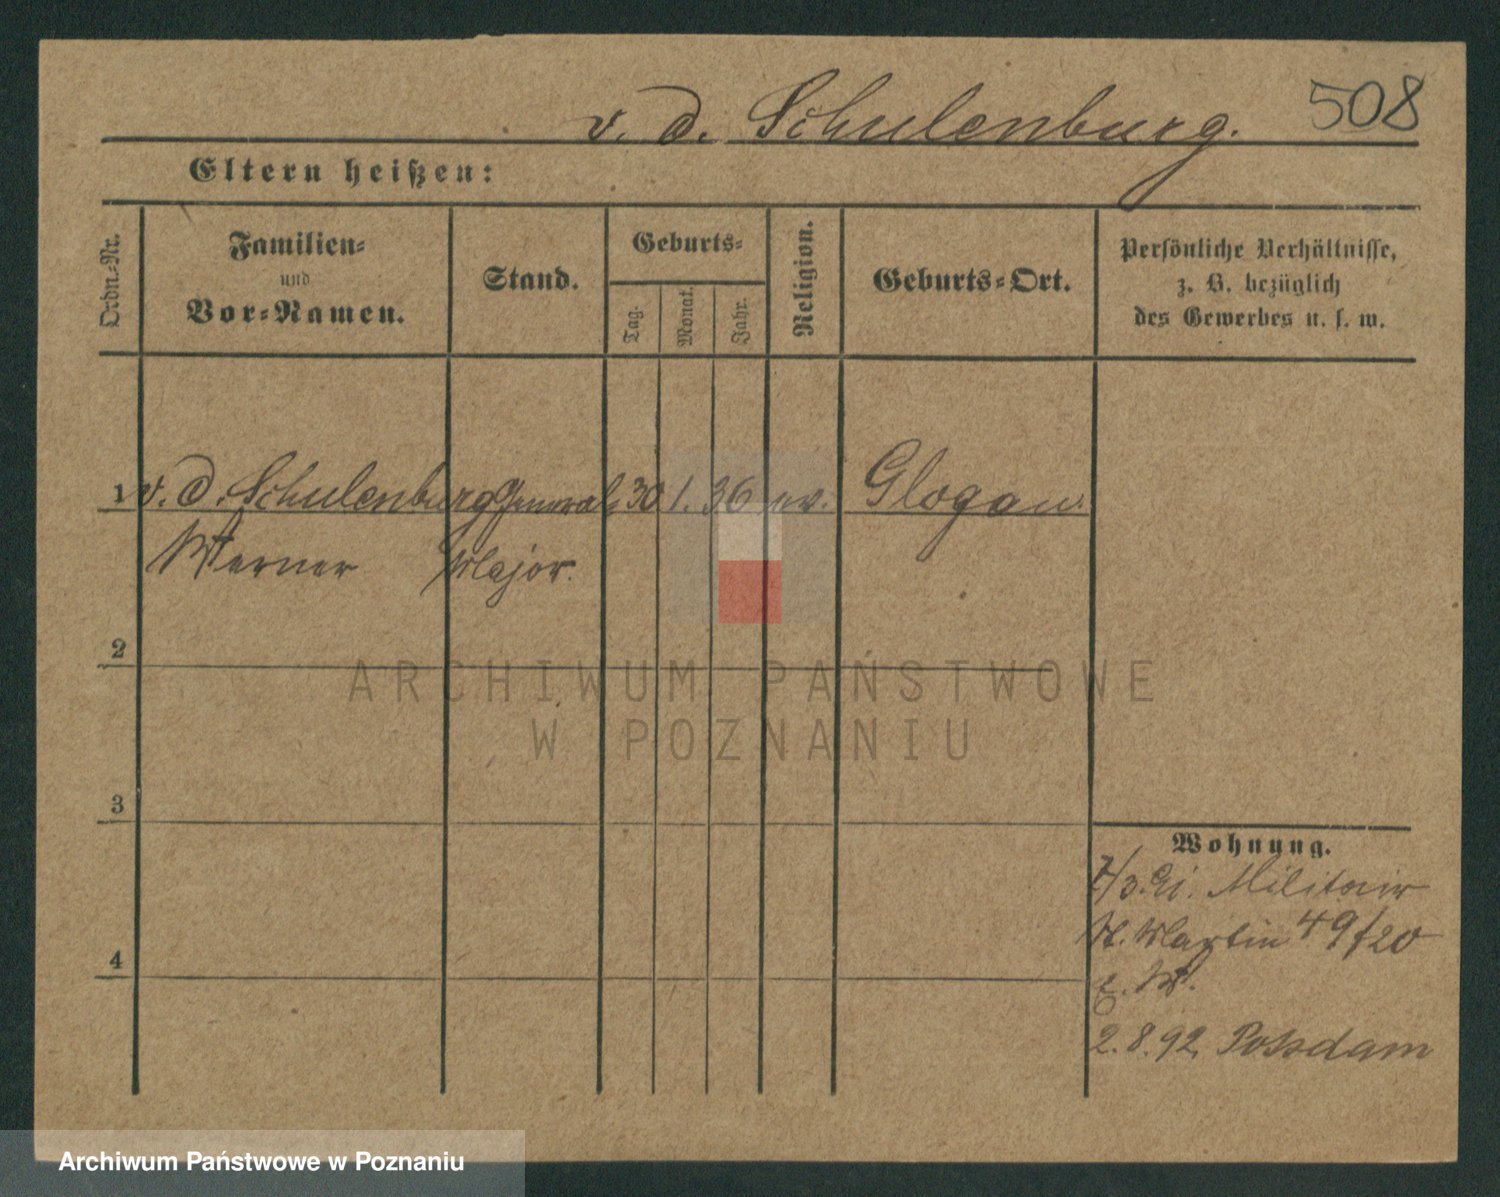 v. d. Schulenburg. 508
Eltern heißen:
Ordn.-Nr.
Familien-
und
Vor-Namen.
Stand.
Geburts-
Tag.
Monat.
Jahr.
Religion.
Geburts-Ort.
Persönliche Verhältnisse,
z. B. bezüglich
des Gewerbes u. s. w.
1 v. d. Schulenburg General 30 1. 36 ev. Glogau.
Werner Major.
2
3
4
Wohnung.
Militair
St. Martin 49/20
2.8.92 Potsdam
ARCHIWUM PAŃSTWOWE
W POZNANIU
Archiwum Państwowe w Poznaniu